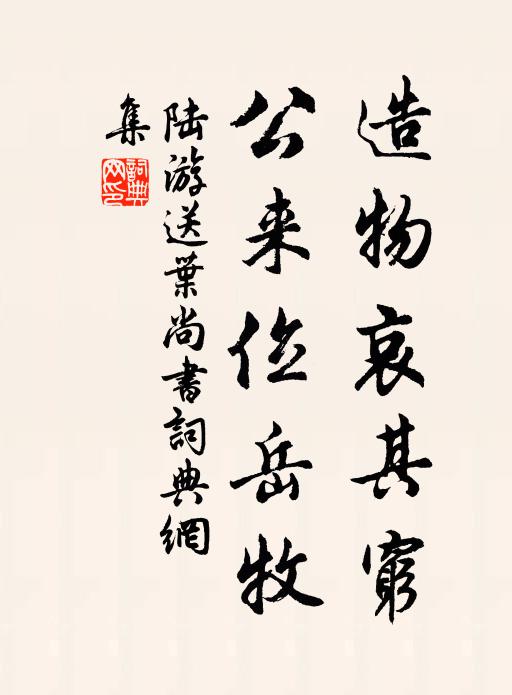 造物哀其窮
公来位岳牧
陸游送葉尚書詞典網
集
詞典网印